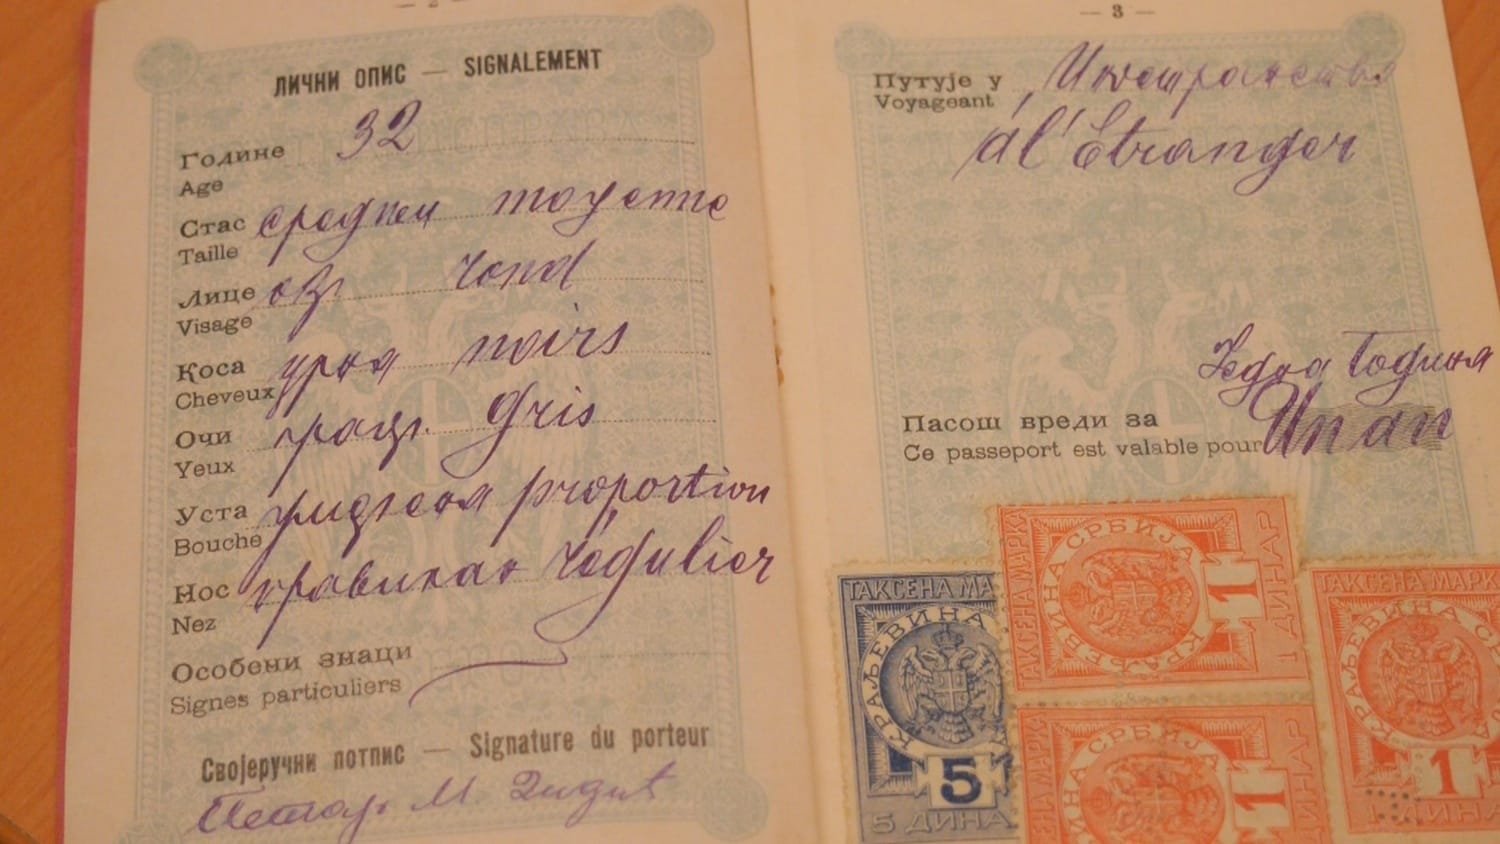 — 2 —
ЛИЧНИ ОПИС — SIGNALEMENT
Године 32
Age
Стас средњи moyenne
Taille
Лице rond
Visage
Коса црна noirs
Cheveux
Очи Gris
Yeux
Уста proportion
Bouche
Нос правилан régulier
Nez
Особени знаци
Signes particuliers
Својеручни потпис — Signature du porteur
Петар М
— 3 —
Путује у Иностранство
Voyageant
à l'Étranger
Једна Година
Пасош вреди за
Ce passeport est valable pour Un an
ТАКСЕНА МА
КРАЉЕВИНА
5
5 ДИНА
ТАКСЕНА МАРКА
КРАЉЕВИНА СРБИЈА
1
1 ДИНАР
СРБИЈА
1
ДИНАР
ТАКСЕНА МАРК
КРАЉЕВИНА
1
ДИНА